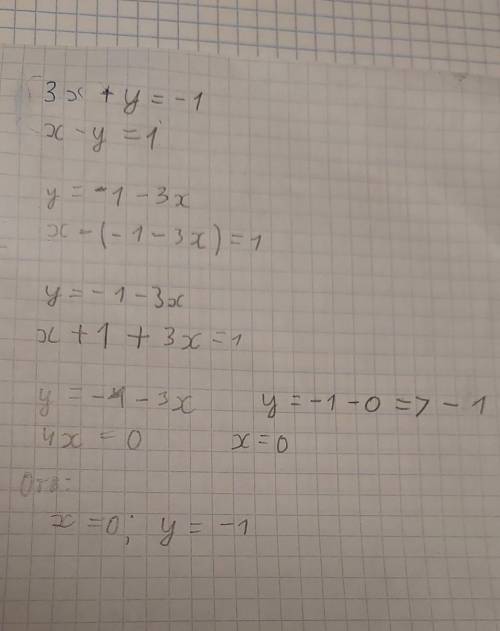 3x + y = -1
x - y = 1
y = -1 - 3x
x - (-1 - 3x) = 1
y = -1 - 3x
x + 1 + 3x = 1
y = -1 - 3x y = -1 - 0 => -1
4x = 0 x = 0
Отв:
x = 0; y = -1